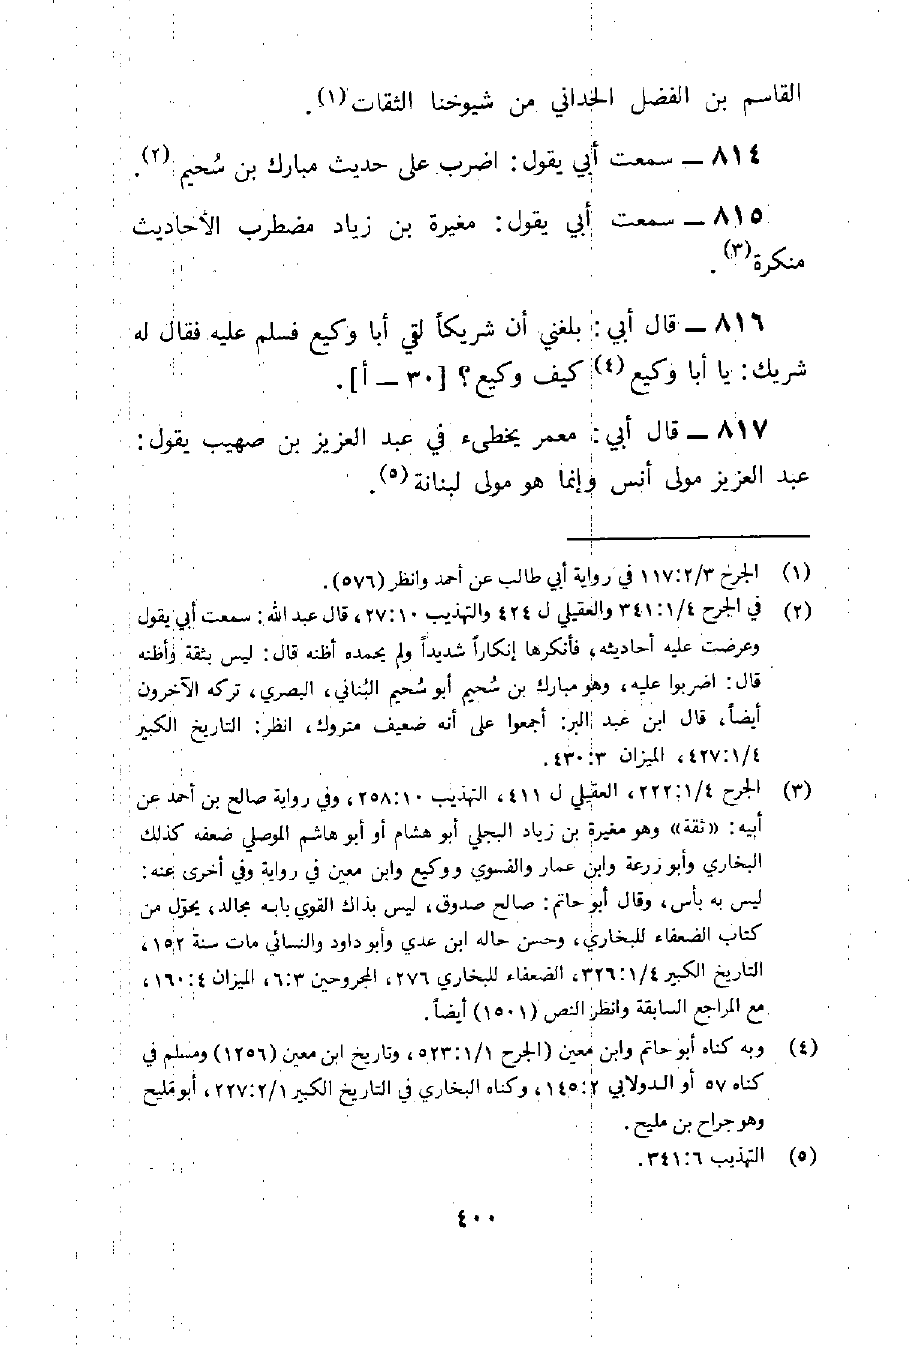 القاسم بن الفضل الحداني من شيوخنا الثقات(١).
٨١٤ — سمعت أبي يقول: اضرب على حديث مبارك بن سُحيم(٢).
٨١٥ — سمعت أبي يقول: مغيرة بن زياد مضطرب الأحاديث
منكرة(٣).
٨١٦ — قال أبي: بلغني أن شريكاً لقي أبا وكيع فسلم عليه فقال له
شريك: يا أبا وكيع(٤) كيف وكيع؟ [٣٠ — أ].
٨١٧ — قال أبي: معمر يخطىء في عبد العزيز بن صهيب يقول:
عبد العزيز مولى أنس وإنما هو مولى لبنانة(٥).
(١) الجرح ١١٧:٢/٣ في رواية أبي طالب عن أحمد وانظر (٥٧٦).
(٢) في الجرح ٣٤١:١/٤ والعقيلي ل ٤٢٤ والتهذيب ٢٧:١٠، قال عبد الله: سمعت أبي يقول
وعرضت عليه أحاديثه، فأنكرها إنكاراً شديداً ولم يحمده أظنه قال: ليس بثقة وأظنه
قال: اضربوا عليه، وهو مبارك بن سُحيم أبو سُحيم البُناني، البصري، تركه الآخرون
أيضاً، قال ابن عبد البر: أجمعوا على أنه ضعيف متروك، انظر: التاريخ الكبير
٤٢٧:١/٤، الميزان ٤٣٠:٣.
(٣) الجرح ٢٢٢:١/٤، العقيلي ل ٤١١، التهذيب ٢٥٨:١٠، وفي رواية صالح بن أحمد عن
أبيه: «ثقة» وهو مغيرة بن زياد البجلي أبو هشام أو أبو هاشم الموصلي ضعفه كذلك
البخاري وأبو زرعة وابن عمار والفسوي ووكيع وابن معين في رواية وفي أخرى عنه:
ليس به بأس، وقال أبو حاتم: صالح صدوق، ليس بذاك القوي بابه مجالد، يحوّل من
كتاب الضعفاء للبخاري، وحسن حاله ابن عدي وأبو داود والنسائي مات سنة ١٥٢،
التاريخ الكبير ٣٢٦:١/٤، الضعفاء للبخاري ٢٧٦، المجروحين ٦:٣، الميزان ١٦٠:٤،
مع المراجع السابقة وانظر النص (١٥٠١) أيضاً.
(٤) وبه كناه أبو حاتم وابن معين (الجرح ٥٢٣:١/١، وتاريخ ابن معين (١٢٥٦) ومسلم في
كناه ٥٧ أو الدولابي ١٤٥:٢، وكناه البخاري في التاريخ الكبير ٢٢٧:٢/١، أبو مَليح
وهو جراح بن مليح.
(٥) التهذيب ٣٤١:٦.
٤٠٠